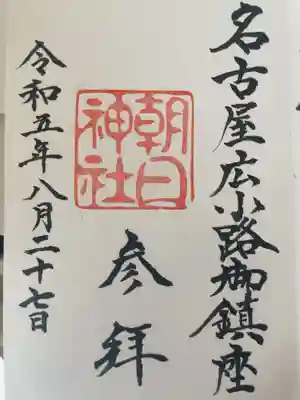 名古屋広小路御鎮座
朝日
神社
参拜
令和五年八月二十七日